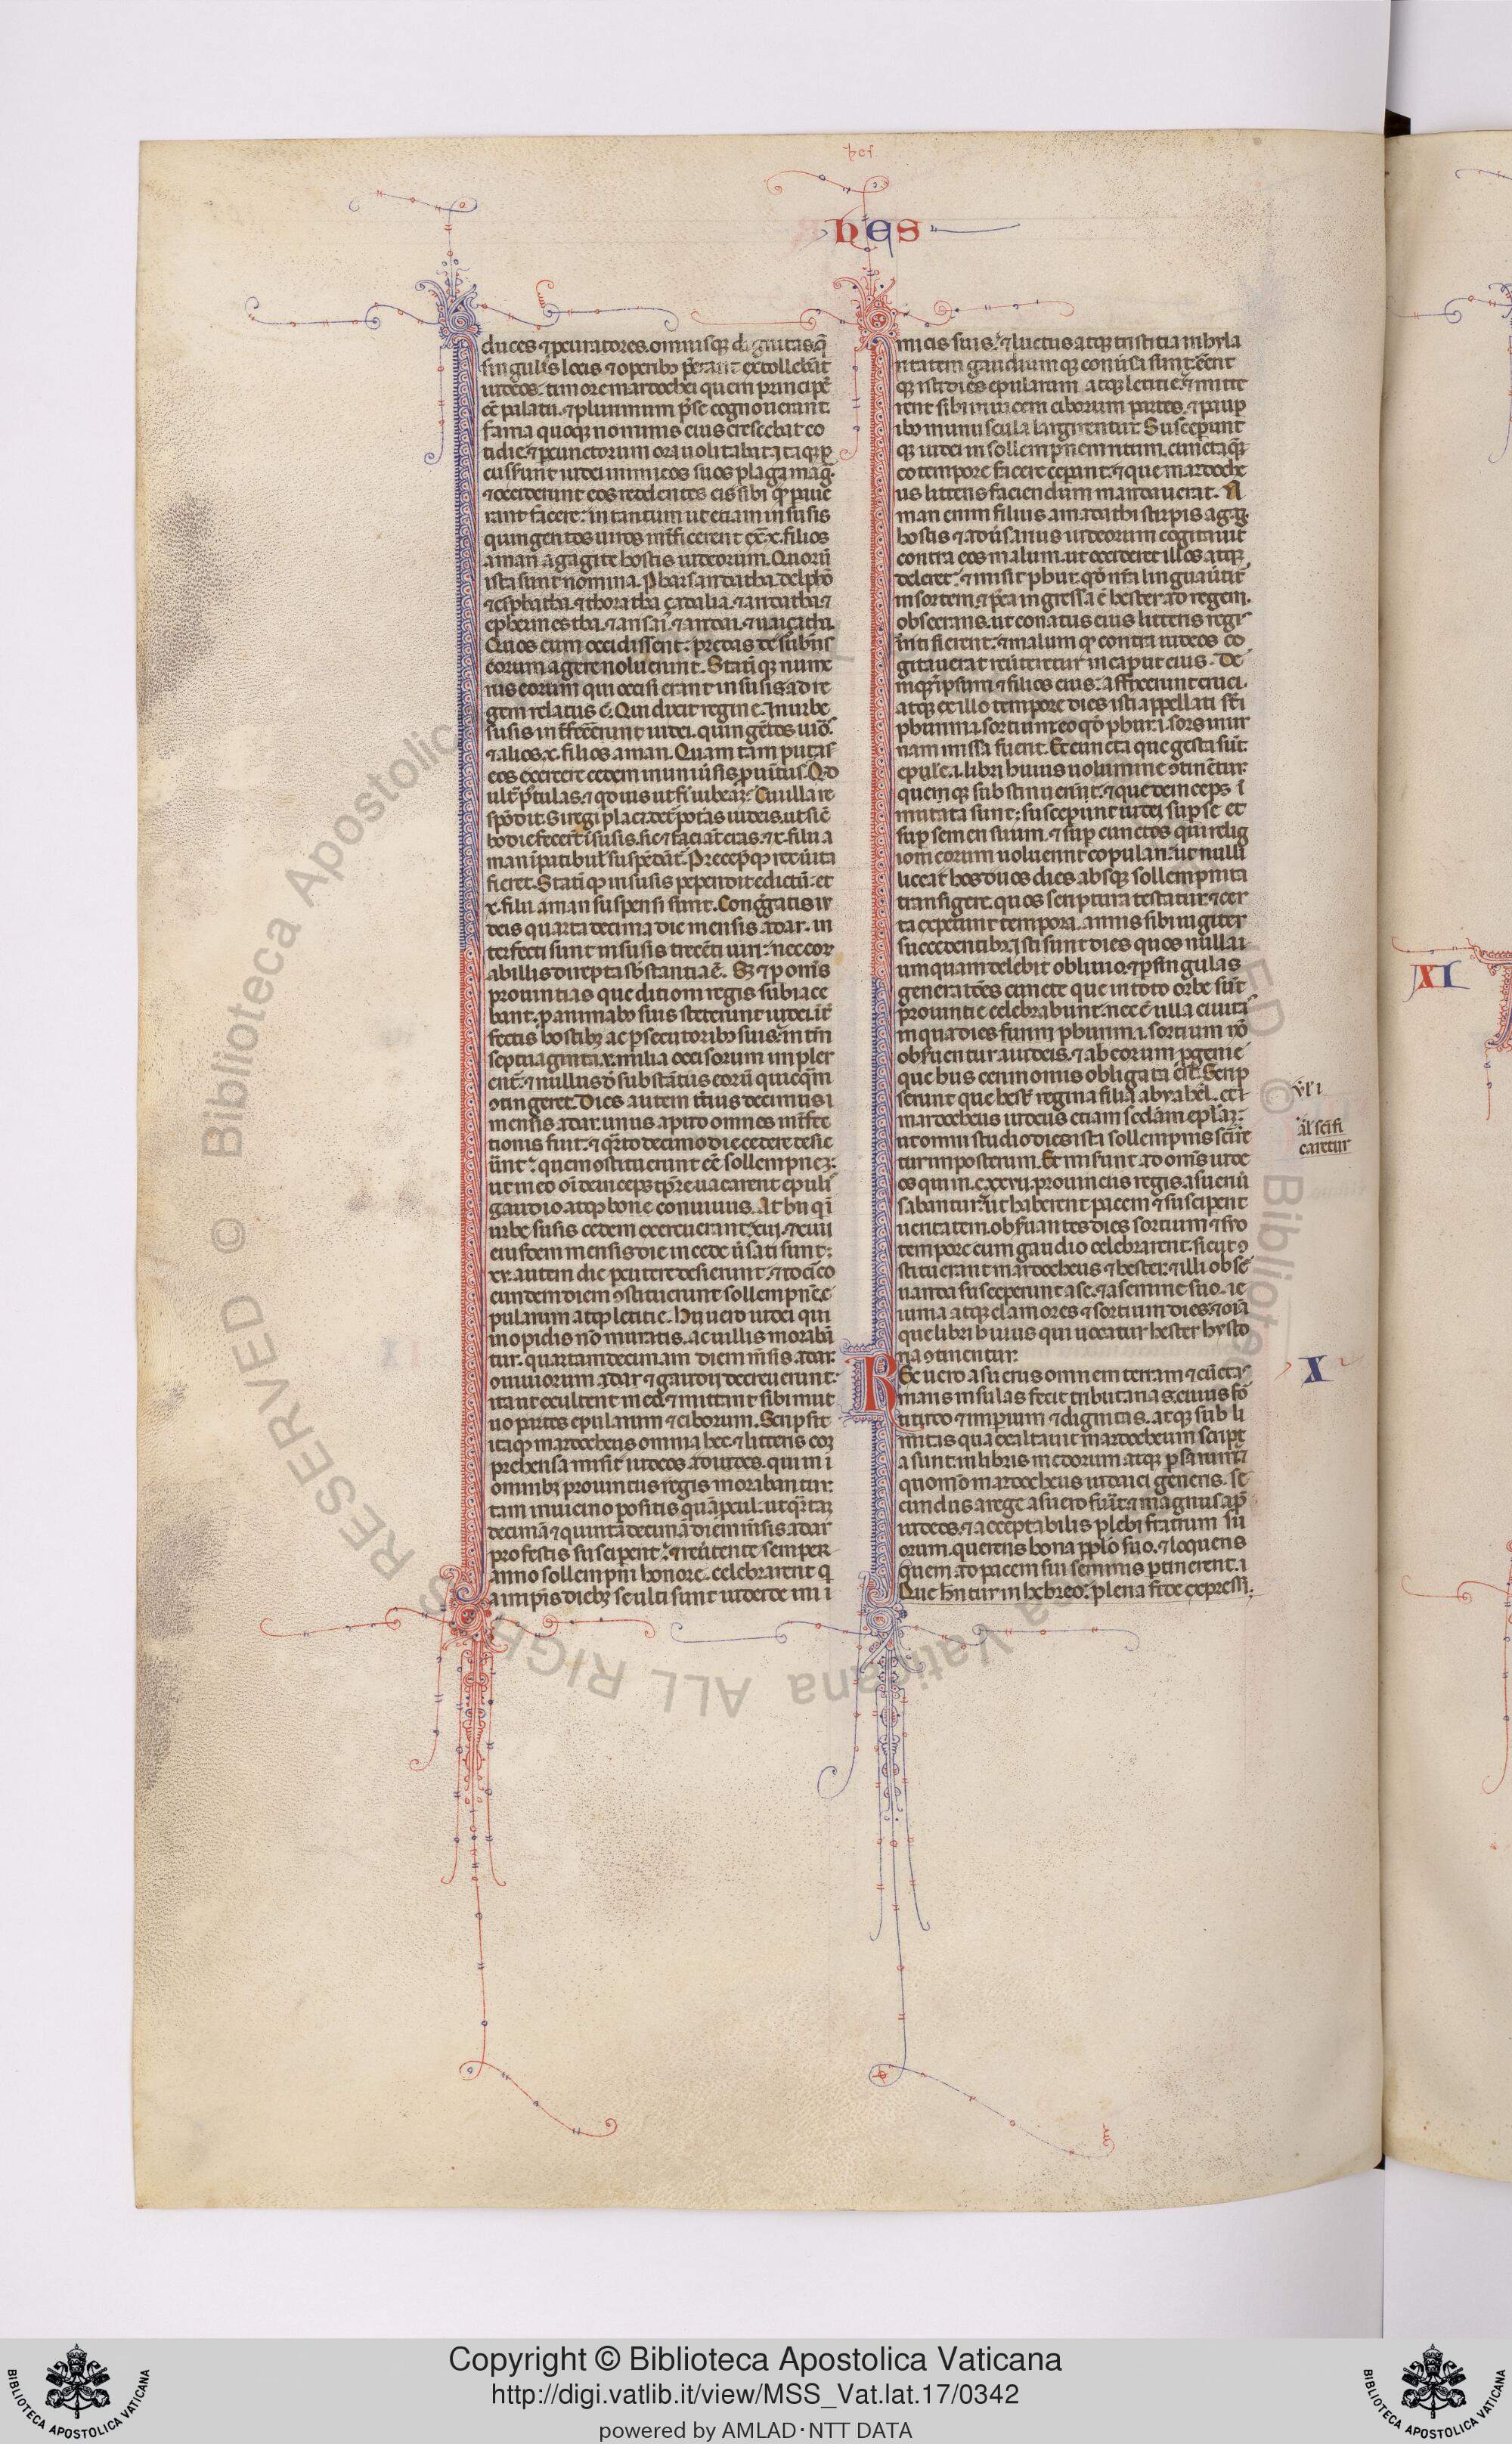 hes
hES
duces ⁊ p̱curatores. omnisq; dignitas. q̃
singulis locis ⁊ opeꝛib; p̃erant extollebãt
iudeos. timore mardochei quem principẽ
eẽ palatii. ⁊ plurimum põsse cognouerant.
fama quoq; nominis eius crescebat co
tidie. ⁊ ꝑ cunctorum ora uolitabat. itaq; ꝑ
cusserunt iudei inimicos suos plaga mag̃.
⁊ occiderunt eos reddentes eis sibi q̃ paue
rant facere. in tantum ut etiam in susis
quingentos uiros int̃ficerent. ex̃. x. filios
aman agagite hostis iudeorum. Quorũ
ista sunt nomina. Pharsandatha. delphõ
⁊ esphatha. ⁊ phoratha. ⁊ adalia. ⁊ aridatha. ⁊
ephermestha. ⁊ arisaĩ. ⁊ aridai. ⁊ uaizatha.
Quos cum occidissent. predas de subñis
eorum agere noluerunt. Statĩq; nume
rus eorum qui occisi erant in susis ad re
gem relatus ẽ. Qui dixit regine. In urbe
susis int̃fecerunt iudei. quingẽtos uiõs.
⁊ alios. x. filios aman. Quam tam putas
eos exercere cedem in uniũsis ꝓuintiis. Qd
ult̃ p̃tulas. ⁊ qd uis ut fi̾i iubeaꝫ. Cui illa re
spõdit. Si regi placet. det̾ potãs iudeis. ut sic̃
hodie fecer̃t ĩ susis. sic ⁊ faciãt cras. ⁊ x. filii a
man ĩ patibul̾ suspẽdãt̾. Precepitq; rex ut ita
fieret. Statĩq; in susis pependit edictũ. et
x. filii aman suspensi sunt. Cong̾gatis iu
deis quarta decima die mensis adar. in
terfecti sunt in susis trecẽti uiri. nec eoꝝ
ab illis direpta sb̾stantia ẽ. Sꝫ ⁊ ꝑ om̃s
prouintias que ditioni regis subiace
bant. p̱ animab; suis steterunt iudei. int̾
fectis hostib; ac ꝑsecutorib; suis. in tm̃
septuaginta. x. milia occisorum impler
ent̾. ⁊ nullus d̾ substãtiis eorũ quicq̃m
ↄtingeret. Dies autem t̾cius decimus i
mensis adar. unus ap̾ d omnes int̾fec
tionis fuit. ⁊ q̃rto decimo die cedere desie
r̃unt. quem ↄstituerunt eẽ sollempneꝫ.
ut in eo oĩ deinceps tp̃re uacarent epulis
gaudio atq; bone conuiuiis. At hii qi ĩ
urbe susis cedem exercuerant. xiii. ⁊ xiiii
eiusdem mensis die in cede ũsati sunt.
xv. autem die percutere desierunt. ⁊ ideic̃o
eundem diem ↄstituerunt sollempnẽ e
pularum atq; letitie. Hii uero iudei qui
in opidis nõ muratis. ac uillis morabã
tur. quartamdecimam diem m̃sis adar
ↄuiuiorum adar ⁊ gaudii decreuerunt.
ita ut exultent in ea. ⁊ mittant sibi mut
uo partes epularum ⁊ ciborum. Scripsit
itaq; mardocheus omnia hec. ⁊ litteris eoꝝ
prehensa misit iudeos ad iudeos. qui in i
omnibꝫ prouinciis regis morabantur.
tam in uicino positis quã p̱cul. ut q̃rtaꝫ
decimã ⁊ quintã decimã diem m̃sis adar
pro festis susciperent. ⁊ reũtente semper
anno sollempni honore celebrarent. q
a in ip̃is dieb; se ulti sunt iudei de ini i
micis suis. ⁊ luctus atq; tristitia in hyla
ritatem gaudiumq; conũsa sunt. eẽnt
q; isti dies epularum atq; letitie. ⁊ mitte
rent sibi inuicem ciborum partes. ⁊ paup̱
ib; munuscula largirentur. Suscep̱unt
q; iudei in sollempnem ritum. cunctaq̃
eo tempore facere cep̱ant. ⁊ que mardoche
us litteris faciendum mandauerat. A
man enim filius amadathi stirpis agag.
hostis ⁊ adũsarius iudeorum cogitauit
contra eos malum. ut occideret illos atq;
deleret. ⁊ misit phur. qđ nr̃a lingua ũtit̾
in sortem. ⁊ p̃ea ingressa ẽ hester ad regem.
obsecrans. ut conatus eius litteris regis
irriti fierent. ⁊ malum qđ contra iudeos co
gitauerat reũteretur in caput eius. De
niq; ⁊ ip̃sum ⁊ filios eius. affixerunt cruci.
atq; ex illo tempore dies isti appellati st̾
phurim. i. sortium. eo qđ phur. i. sors in ur
nam missa fuerit. Et cuncta que gesta sũt.
epule. i. libri huius uolumine ↄtinẽtur.
quemq; substinuerũt. ⁊ que deinceps i
mutata sunt. suscep̱unt iudei sup̱ se et
sup̱ semen suum. ⁊ sup̱ cunctos qui relig
ioni eorum uoluerint copulari. ut nulli
liceat hos duos dies absq; sollempnita
transigere. quos scriptura testatur. ⁊ cer
ta expetunt tempora. annis sibi iugiter
succedentib;. isti sunt dies quos nulla i
umquam delebit obliuio. ⁊ ꝑ singulas
generatões cuncte que in toto orbe sũt
prouintie celebrabunt. nec ẽ ulla ciuitas
in qua dies furim phurim. i. sortium nõ
obseruentur a iudeis. ⁊ ab eorum p̱genie
que hiis cerimoniis obligata est. Scrip
serunt que hest̾ regina filia abyahel. et i
mardocheus iudeus etiam sedam epl̃aꝫ.
ut omni studio dies isti sollempnis sc̃iret̾
tur in posterum. Et miserunt ad om̃s iude
os qui in. c.xxvii. prouinciis regis asueri ũ
sabantur. ut haberent pacem ⁊ suscip̱ent
ueritatem. obseruantes dies sortium ⁊ suo
tempore cum gaudio celebrarent. sicut ↄ
stituerant mardocheus ⁊ hester. ⁊ illi obse
uanda susceperunt a se. ⁊ a semine suo. ie
iunia atq; clamores ⁊ sortium dies. ⁊ oĩa
que libri huius qui uocatur hester hysto
ria ↄtinentur.
X
REx uero asuerus omnem terram ⁊ cũctas
maris insulas fecit tributarias. cuius fo
rtitudo ⁊ imp̱ium ⁊ dignitas. atq; subli
mitas qua exaltauit mardocheum script
a sunt. in libris medorum. atq; ꝑsarum. ⁊
quomõ mardocheus iudaici generis. se
cundus a rege asuero fuit. ⁊ magnus ap̃
iudeos. ⁊ acceptabilis plebi fratrum su
orum. querens bona pplo suo. ⁊ loquens
quem ad pacem sui seminis ꝑtinerent. i
Que hñtur in hebreo. plena fide expressi.
ul̾ i
al̾ scifi
caretur
XI
Copyright © Biblioteca Apostolica Vaticana
http://digi.vatlib.it/view/MSS_Vat.lat.17/0342
powered by AMLAD·NTT DATA
BIBLIOTECA APOSTOLICA VATICANA
BIBLIOTECA APOSTOLICA VATICANA
© Biblioteca Apostolica Vaticana ALL RIGHTS RESERVED